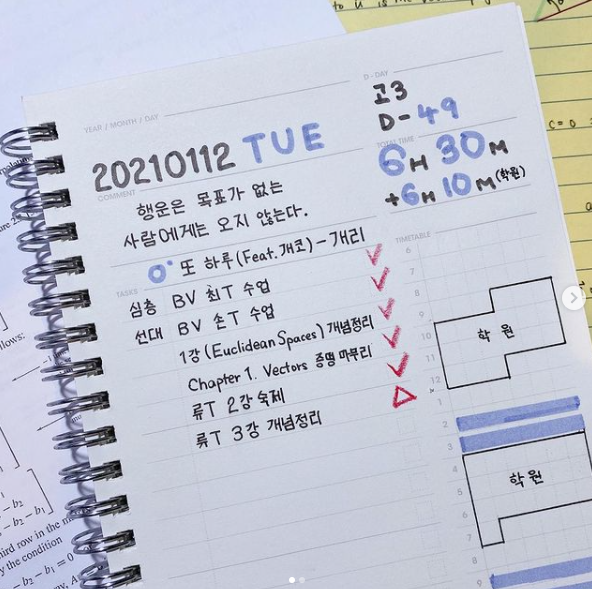 YEAR / MONTH / DAY
20210112 TUE
D-DAY
고3
D-49
TOTAL TIME
6H 30M
+6H 10M (학원)
COMMENT
행운은 목표가 없는
사람에게는 오지 않는다.
또 하루 (Feat.개코) - 개리
TASKS
심층 BV 최T 수업
선대 BV 손T 수업
1강 (Euclidean Spaces) 개념정리
Chapter 1. Vectors 증명 마무리
류T 2강 숙제
류T 3강 개념정리
TIMETABLE
6
7
8
9
10
11
12
1
2
3
4
5
6
7
8
9
학원
학원
C = 0
llows:
- b₂
- b₂ - b₁
hird row in the m
y the condition
- b₂ - b₁ = 0